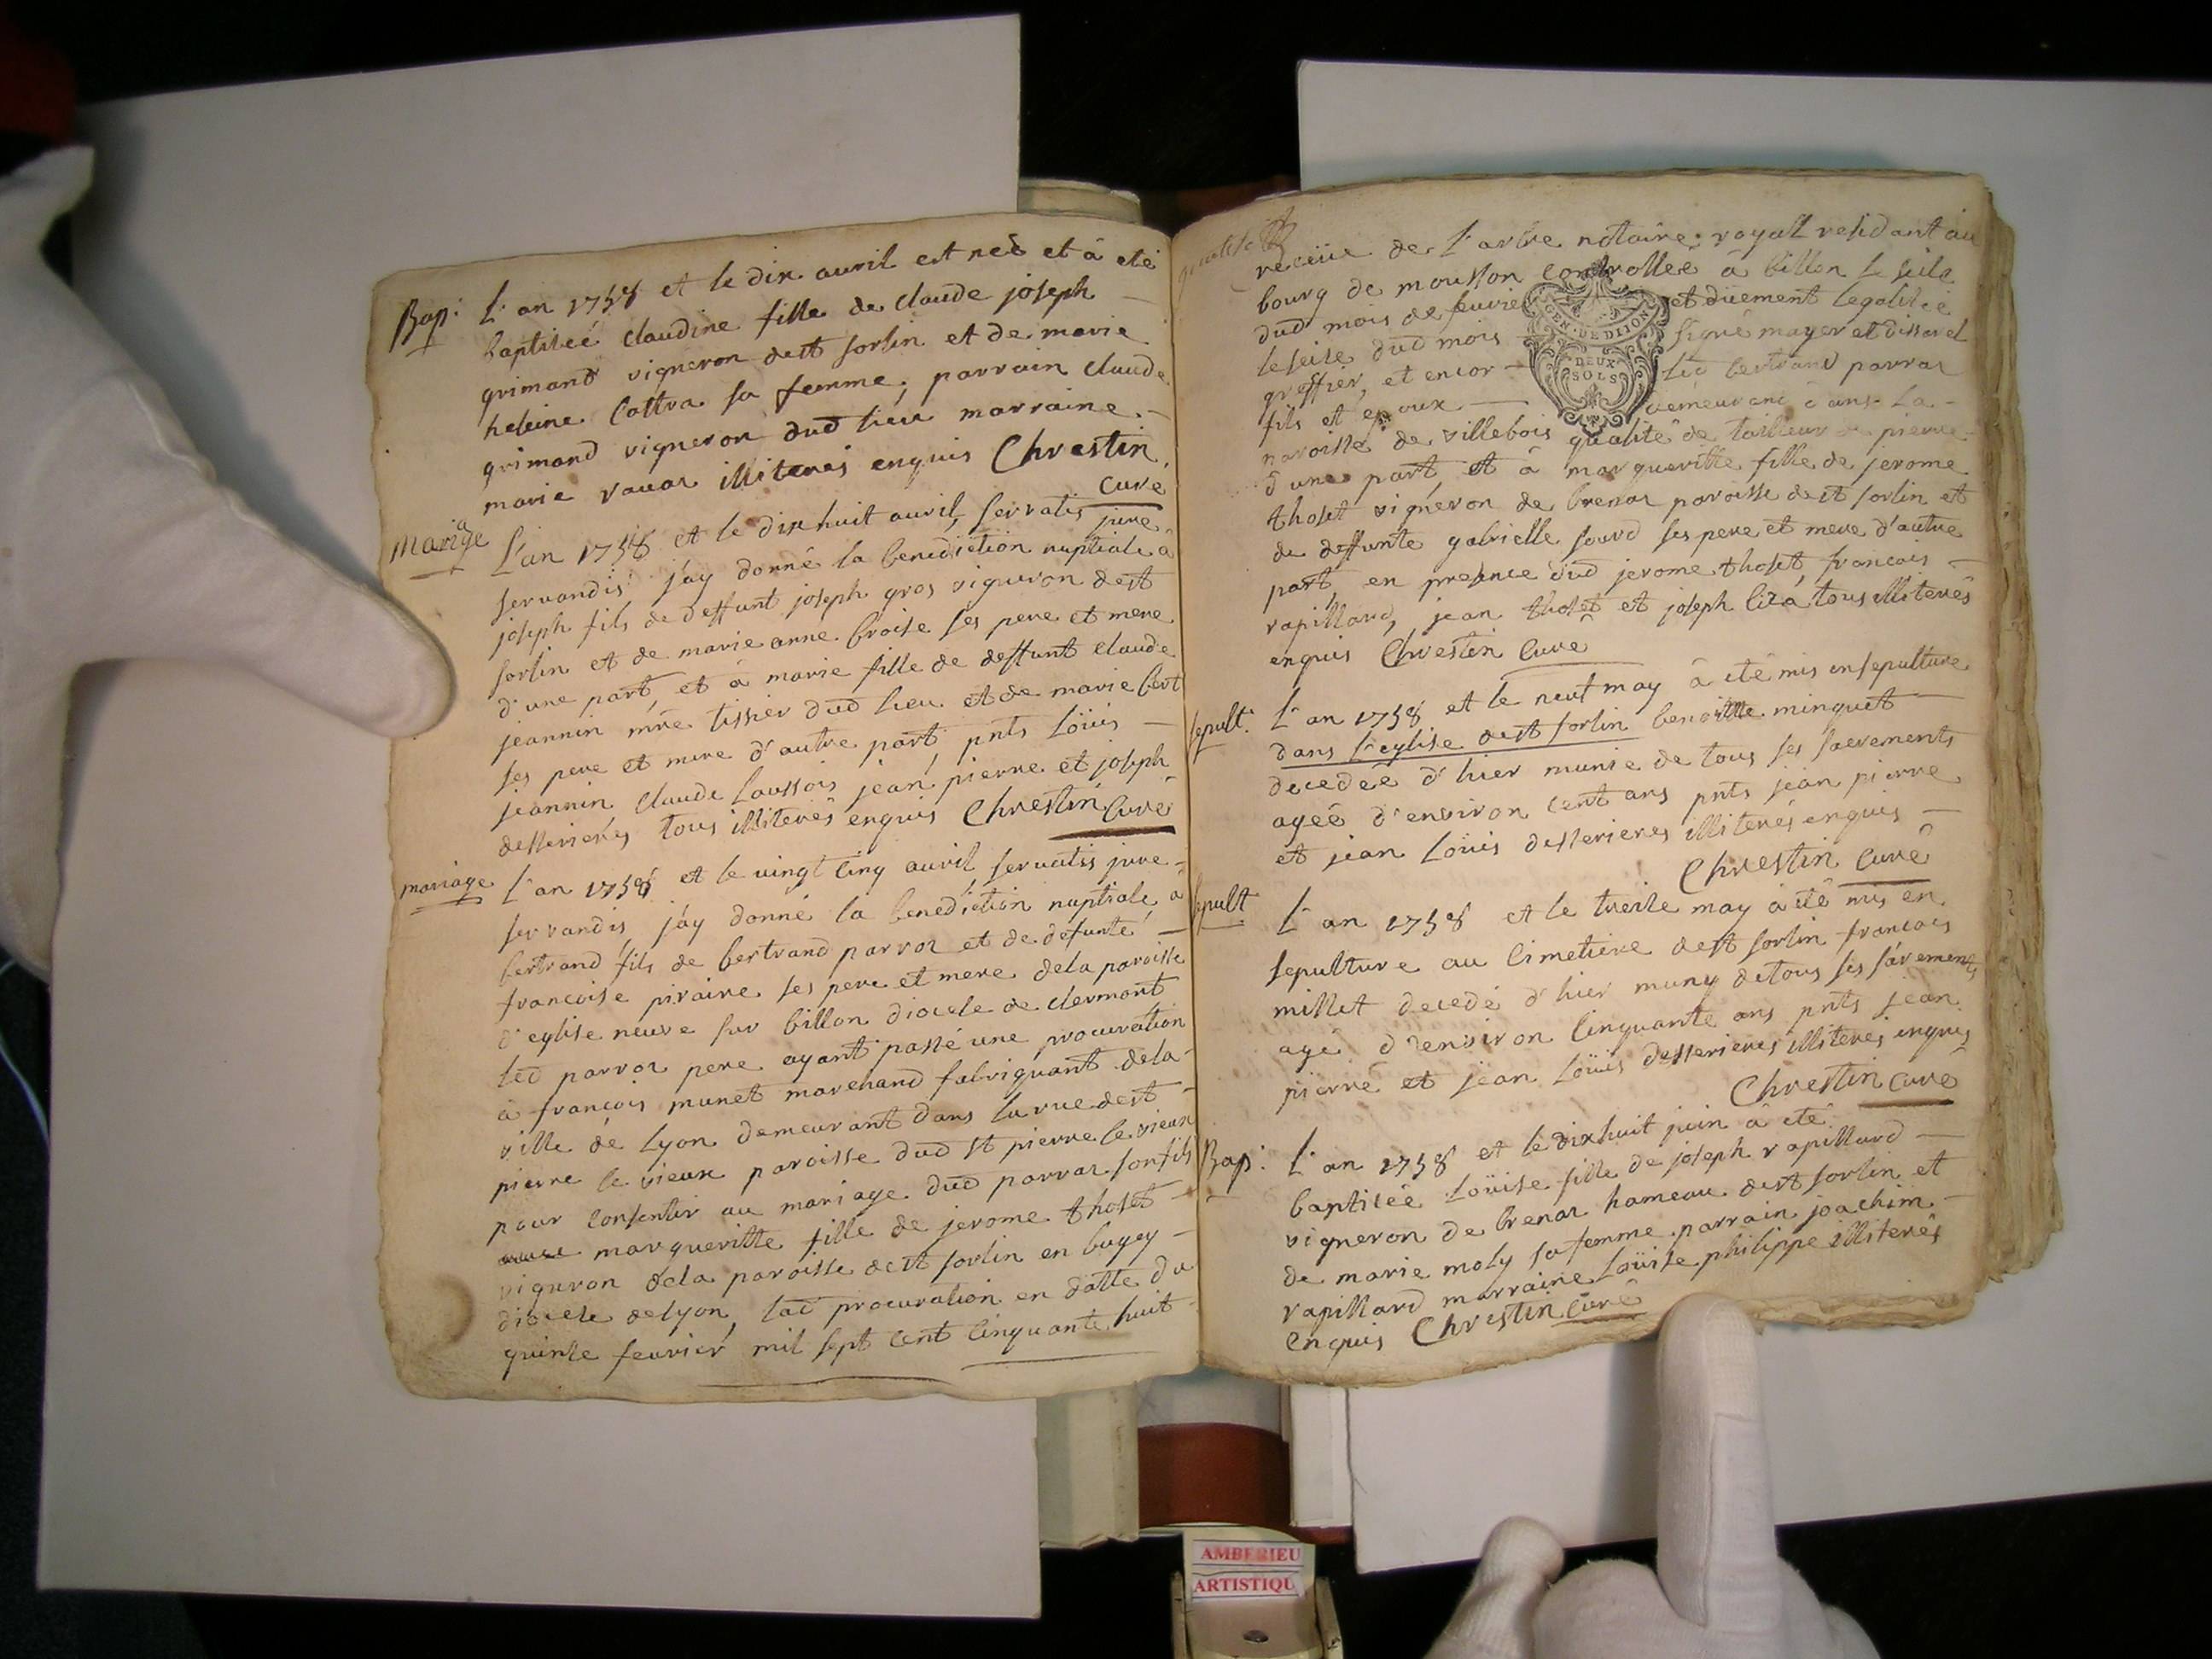 Bap: L'an 1758 et le dix auril est neé et à eté
baptiseé claudine fille de claude joseph —
grimand vigneron dest sorlin et de marie
heleine Cottra sa femme, parrain claude
grimand vigneron dud lieu marraine —
marie illiterés enquis Chrestin
curé
Mariage L'an 1758 et le dix huit auril, servatis jure
servandis, j'ay donné la benediction nuptiale à
joseph fils de deffunt joseph gros vigneron dest
sorlin et de marie anne broise ses pere et mere
d'une part, et à marie fille de deffunt claude
jeannin mre tissier dud lieu et de marie bert
ses pere et mere d'autre part, pnts Loüis —
jeannin claude Laussois jean pierre et joseph
desserieres tous illiterés enquis Chrestin Curé
mariage L'an 1758 et le vingt cinq auril servatis jure —
servandis j'ay donné la benediction nuptiale à
bertrand fils de bertrand parrot et de defunte —
francoise piraire ses pere et mere dela paroisse
d'eglise neuve sur billon diocese de clermont
led parrot pere ayant passé une procuration
à francois munet marchand fabriquant dela
ville de Lyon demeurant dans la rue dest —
pierre le vieux paroisse dud st pierre le vieux
pour consentir au mariage dud parrot son fils
avec margueritte fille de jerome thoset —
vigneron dela paroisse dest sorlin en bugey —
diocese delyon, lad procuration en datte du
quinse feurier mil sept cent cinquante huit
receüe de L'arbre notaire royall residant au
bourg de mousson controlleé à billon le seise
dud mois de feurier et düement legaliseé
le seise dud mois signé mayer et dissard
GEN. DE DIJON
DEUX
SOLS
greffier, et encor — led bertrand parrot
fils et epoux — demeurant dans la —
paroisse de villebois qualité de tailleur de pierre
d'une part, et à margueritte fille de jerome
thoset vigneron de brenaz paroisse dest sorlin et
de deffunte gabrielle sourd ses pere et mere d'autre
part, en presence dud jerome thoset, francois —
rapillard, jean thoset et joseph liza, tous illiterés
enquis Chrestin Curé
sepult. L'an 1758 et le neuf may à eté mis ensepulture
dans l'eglise dest sorlin benoitte minguet —
decedeé d'hier munie de tous ses sacrements
ageé d'environ cent ans pnts jean pierre
et jean Loüis desserieres illiterés enquis —
Chrestin Curé
sepult L'an 1758 et le treise may à eté mis en
sepulture au cimetiere dest sorlin francois
millet decedé d'hier muny detous ses sacrements
agé d'environ cinquante ans pnts jean
pierre et jean Loüis desserieres illiterés enquis
Chrestin curé
Bap: L'an 1758 et le dixhuit juin à eté
baptiseé Loüise fille de joseph rapillard —
vigneron de brenaz hameau dest sorlin et
de marie moly sa femme parrain joachim —
rapillard marraine Loüise philippe illiterés
enquis Chrestin Curé
AMBERIEU
ARTISTIQU